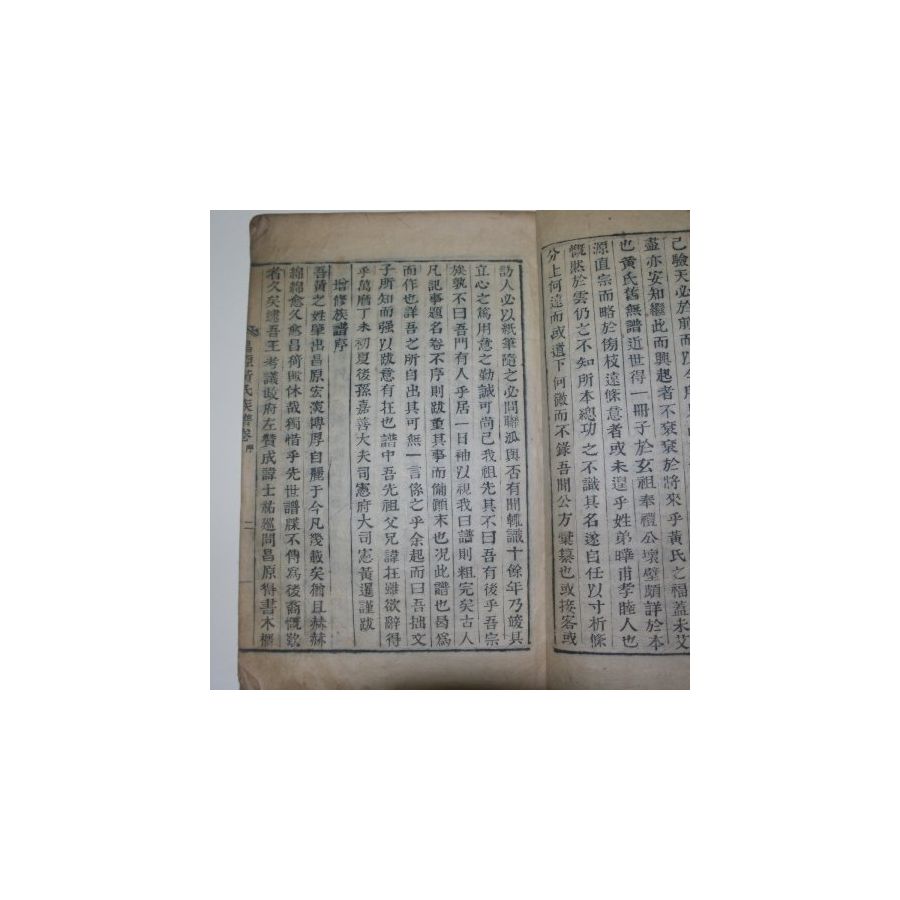 己驗天必於前而以
盡亦安知繼此而興起者不衰衰於將來乎黃氏之福蓋未艾
也黃氏舊無譜近世得一冊子於玄祖奉禮公壞壁頗詳於本
源直宗而略於傍枝遠條意者或未遑乎姓弟曄甫孝睦人也
慨然於雲仍之不知所本總功之不識其名遂自任以寸析條
分上何遠而或遺下何微而不錄吾聞公方彙纂也或接客或
訪人必以紙筆隨之必問聯派與否有聞輒識十餘年乃竣其
立心之篤用意之勤誠可尚已我祖先其不曰吾有後乎吾宗
族孰不曰吾門有人乎居一日袖以視我曰譜則粗完矣古人
凡記事題名卷不序則跋重其事而備顚末也况此譜也曷爲
而作也詳吾之所自出其可無一言係之乎余起而曰吾拙文
子所知而强以跋意有在也譜中吾先祖父兄諱在雖欲辭得
乎萬曆丁未初夏後孫嘉善大夫司憲府大司憲黃暹謹跋
增修族譜序
吾黃之姓肇出昌原宏演磅厚自麗于今凡幾載矣猶且赫赫
綿綿愈久愈昌猗歟休哉獨惜乎先世譜牒不傳爲後裔慨歎
者久矣逮吾王考議政府左贊成諱士祐巡問昌原得書木櫃
昌原黃氏族譜卷 序 二